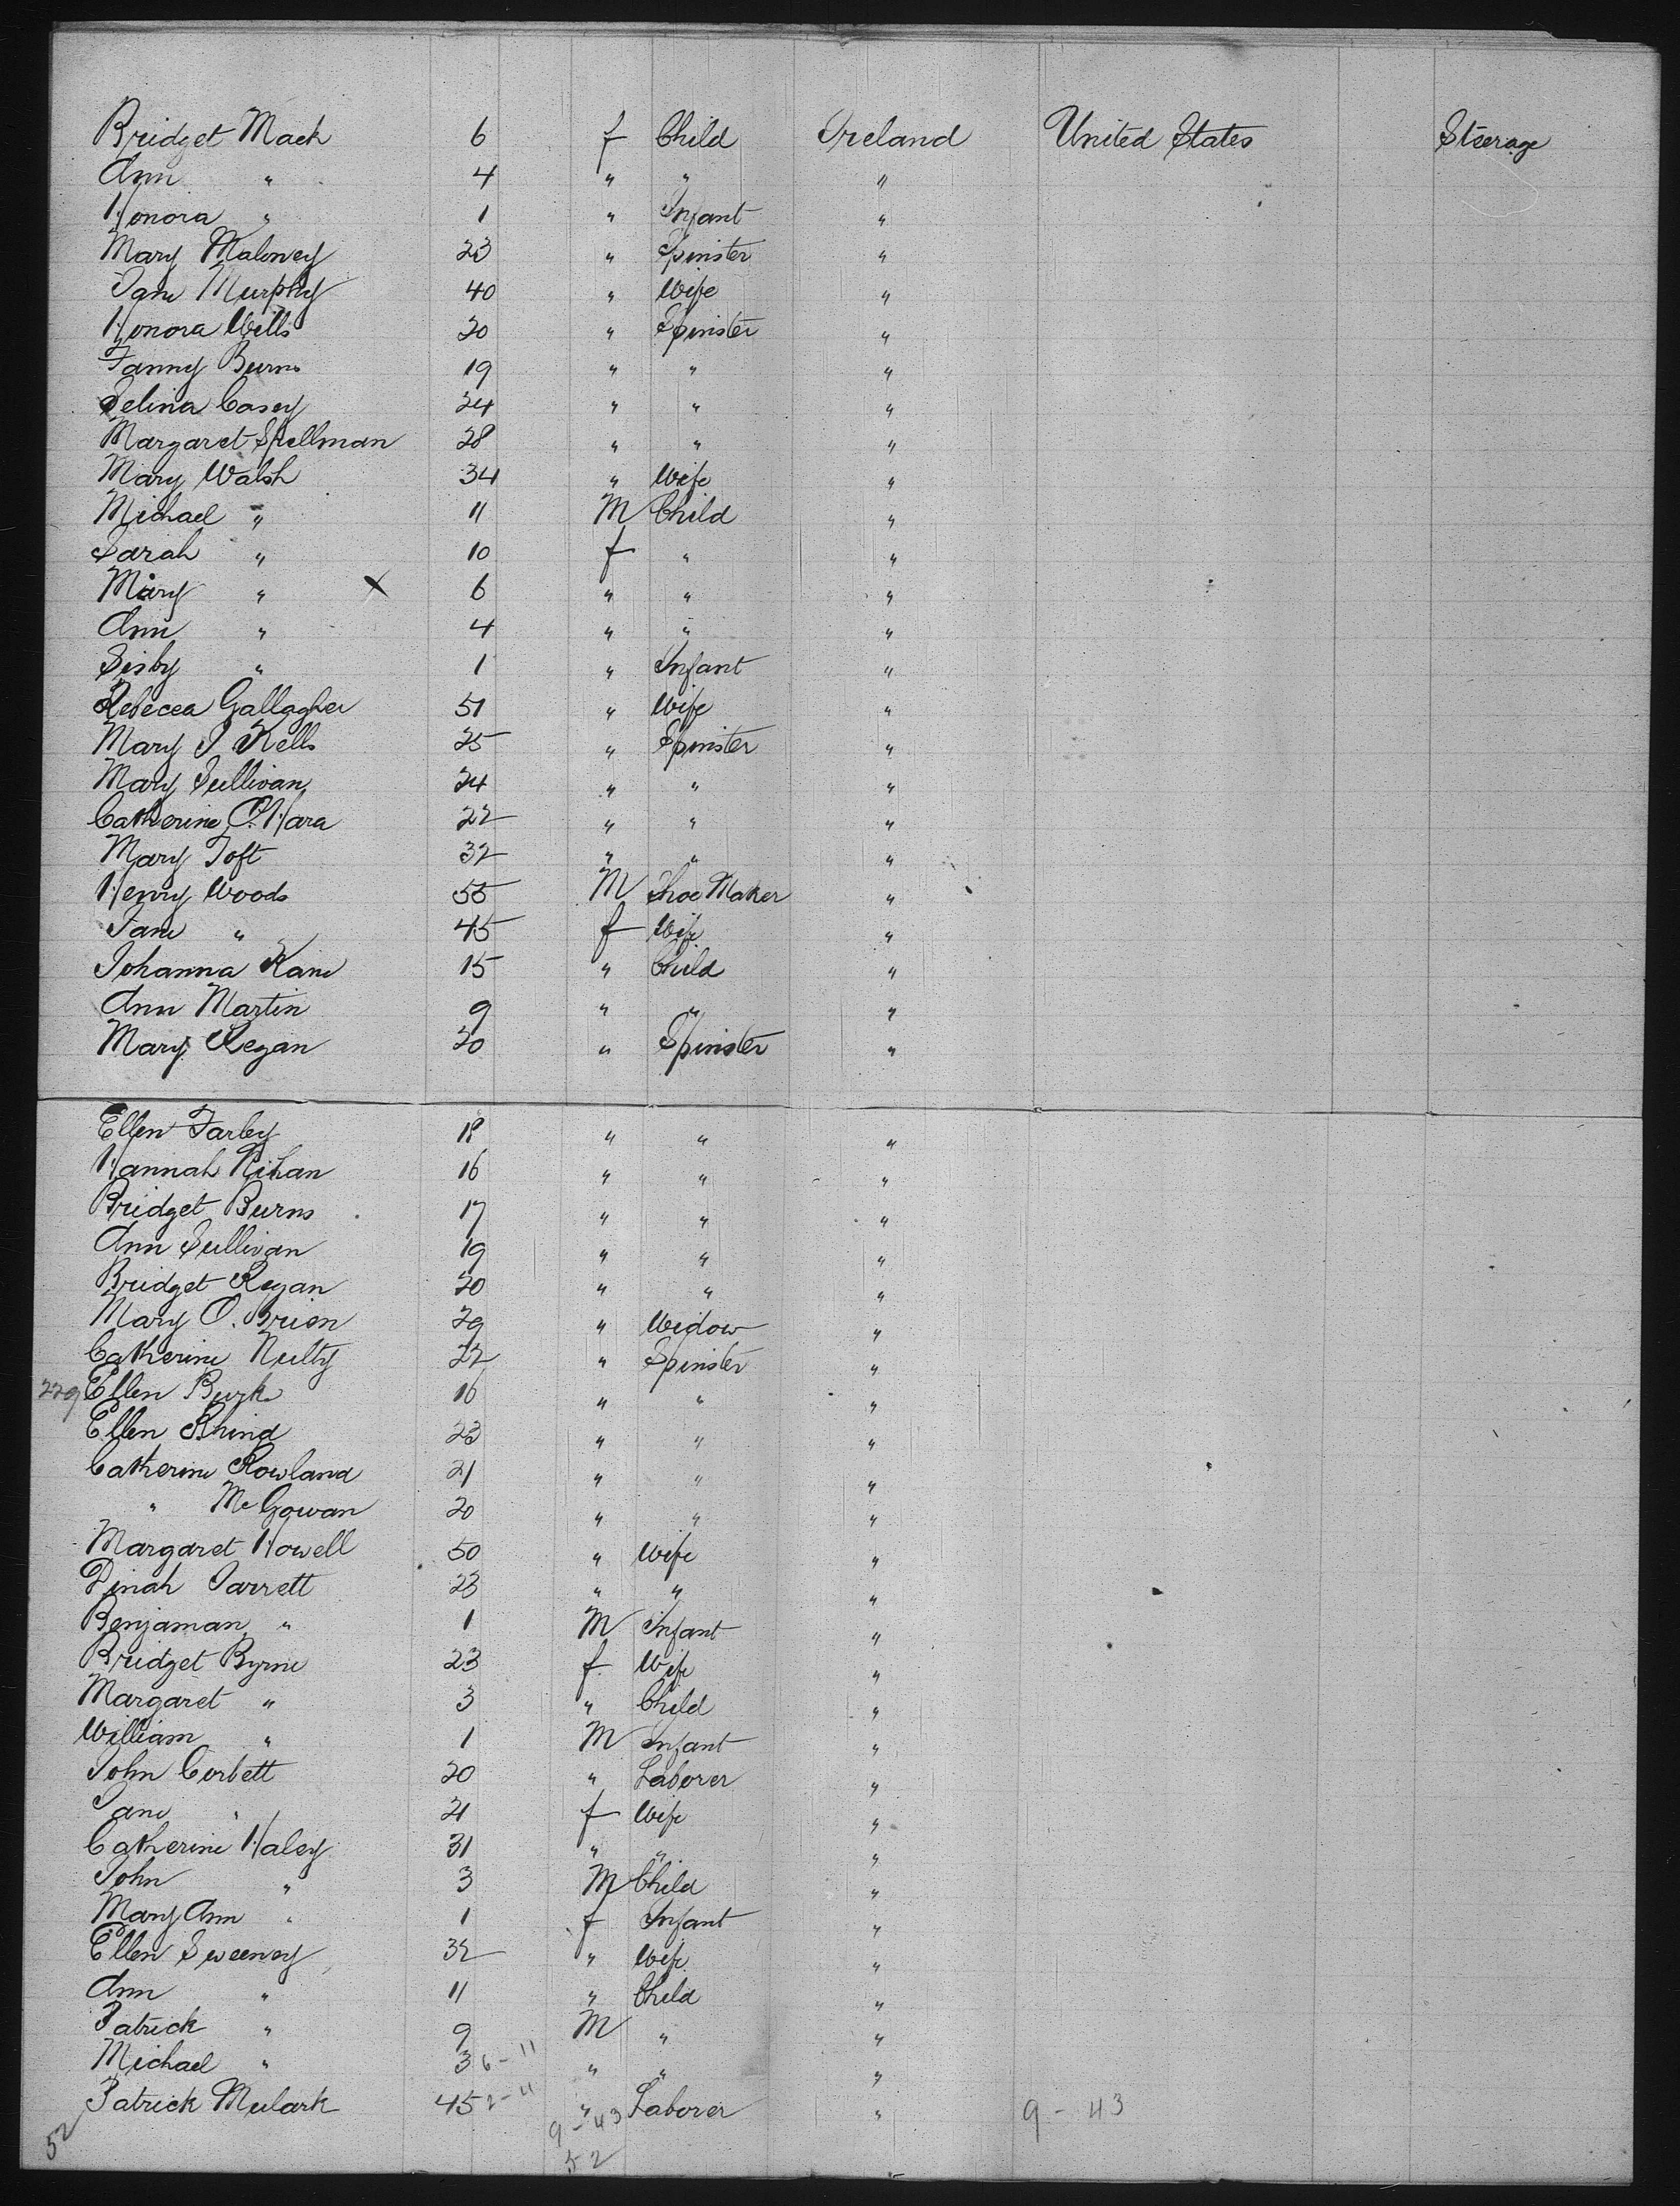 Bridget Mack 6 f Child Ireland United States Steerage
Ann " 4 " " "
Honora " 1 " Infant "
Mary Maloney 23 " Spinster "
Jane Murphy 40 " Wife "
Honora Wills 20 " Spinster "
Fanny Burns 19 " " "
Selina Casey 24 " " "
Margaret Spellman 28 " " "
Mary Walsh 34 " Wife "
Michael " 11 M Child "
Sarah " 10 f " "
Mary " X 6 " " "
Ann " 4 " " "
Sisby " 1 " Infant "
Rebecea Gallagher 51 " Wife "
Mary J Kells 25 " Spinster "
Mary Sullivan 24 " " "
Catherine O'Hara 22 " " "
Mary Toft 32 " " "
Henry Woods 55 M Shoe Maker "
Jane " 45 f Wife "
Johanna Kane 15 " Child "
Ann Martin 9 " " "
Mary Regan 20 " Spinster "
Ellen Farley 18 " " "
Hannah Nihan 16 " " "
Bridget Burns 17 " " "
Ann Sullivan 19 " " "
Bridget Regan 20 " " "
Mary O. Brien 29 " Widow "
Catherine Nulty 22 " Spinster "
229 Ellen Burk 16 " " "
Ellen Rhind 23 " " "
Catherine Rowland 21 " " "
" Mc Gowan 20 " " "
Margaret Howell 50 " Wife "
Dinah Jarrett 23 " " "
Benjaman " 1 M Infant "
Bridget Byrne 23 f Wife "
Margaret " 3 " Child "
William " 1 M Infant "
John Corbett 20 " Laborer "
Jane " 21 f Wife "
Catherine Haley 31 " " "
John " 3 M Child "
Mary Ann " 1 f Infant "
Ellen Sweeney 32 " Wife "
Ann " 11 " Child "
Patrick " 9 M " "
Michael " 3 6-11 " " "
Patrick Mulark 45 2-4 " Laborer "
52 9-43 9-43
52